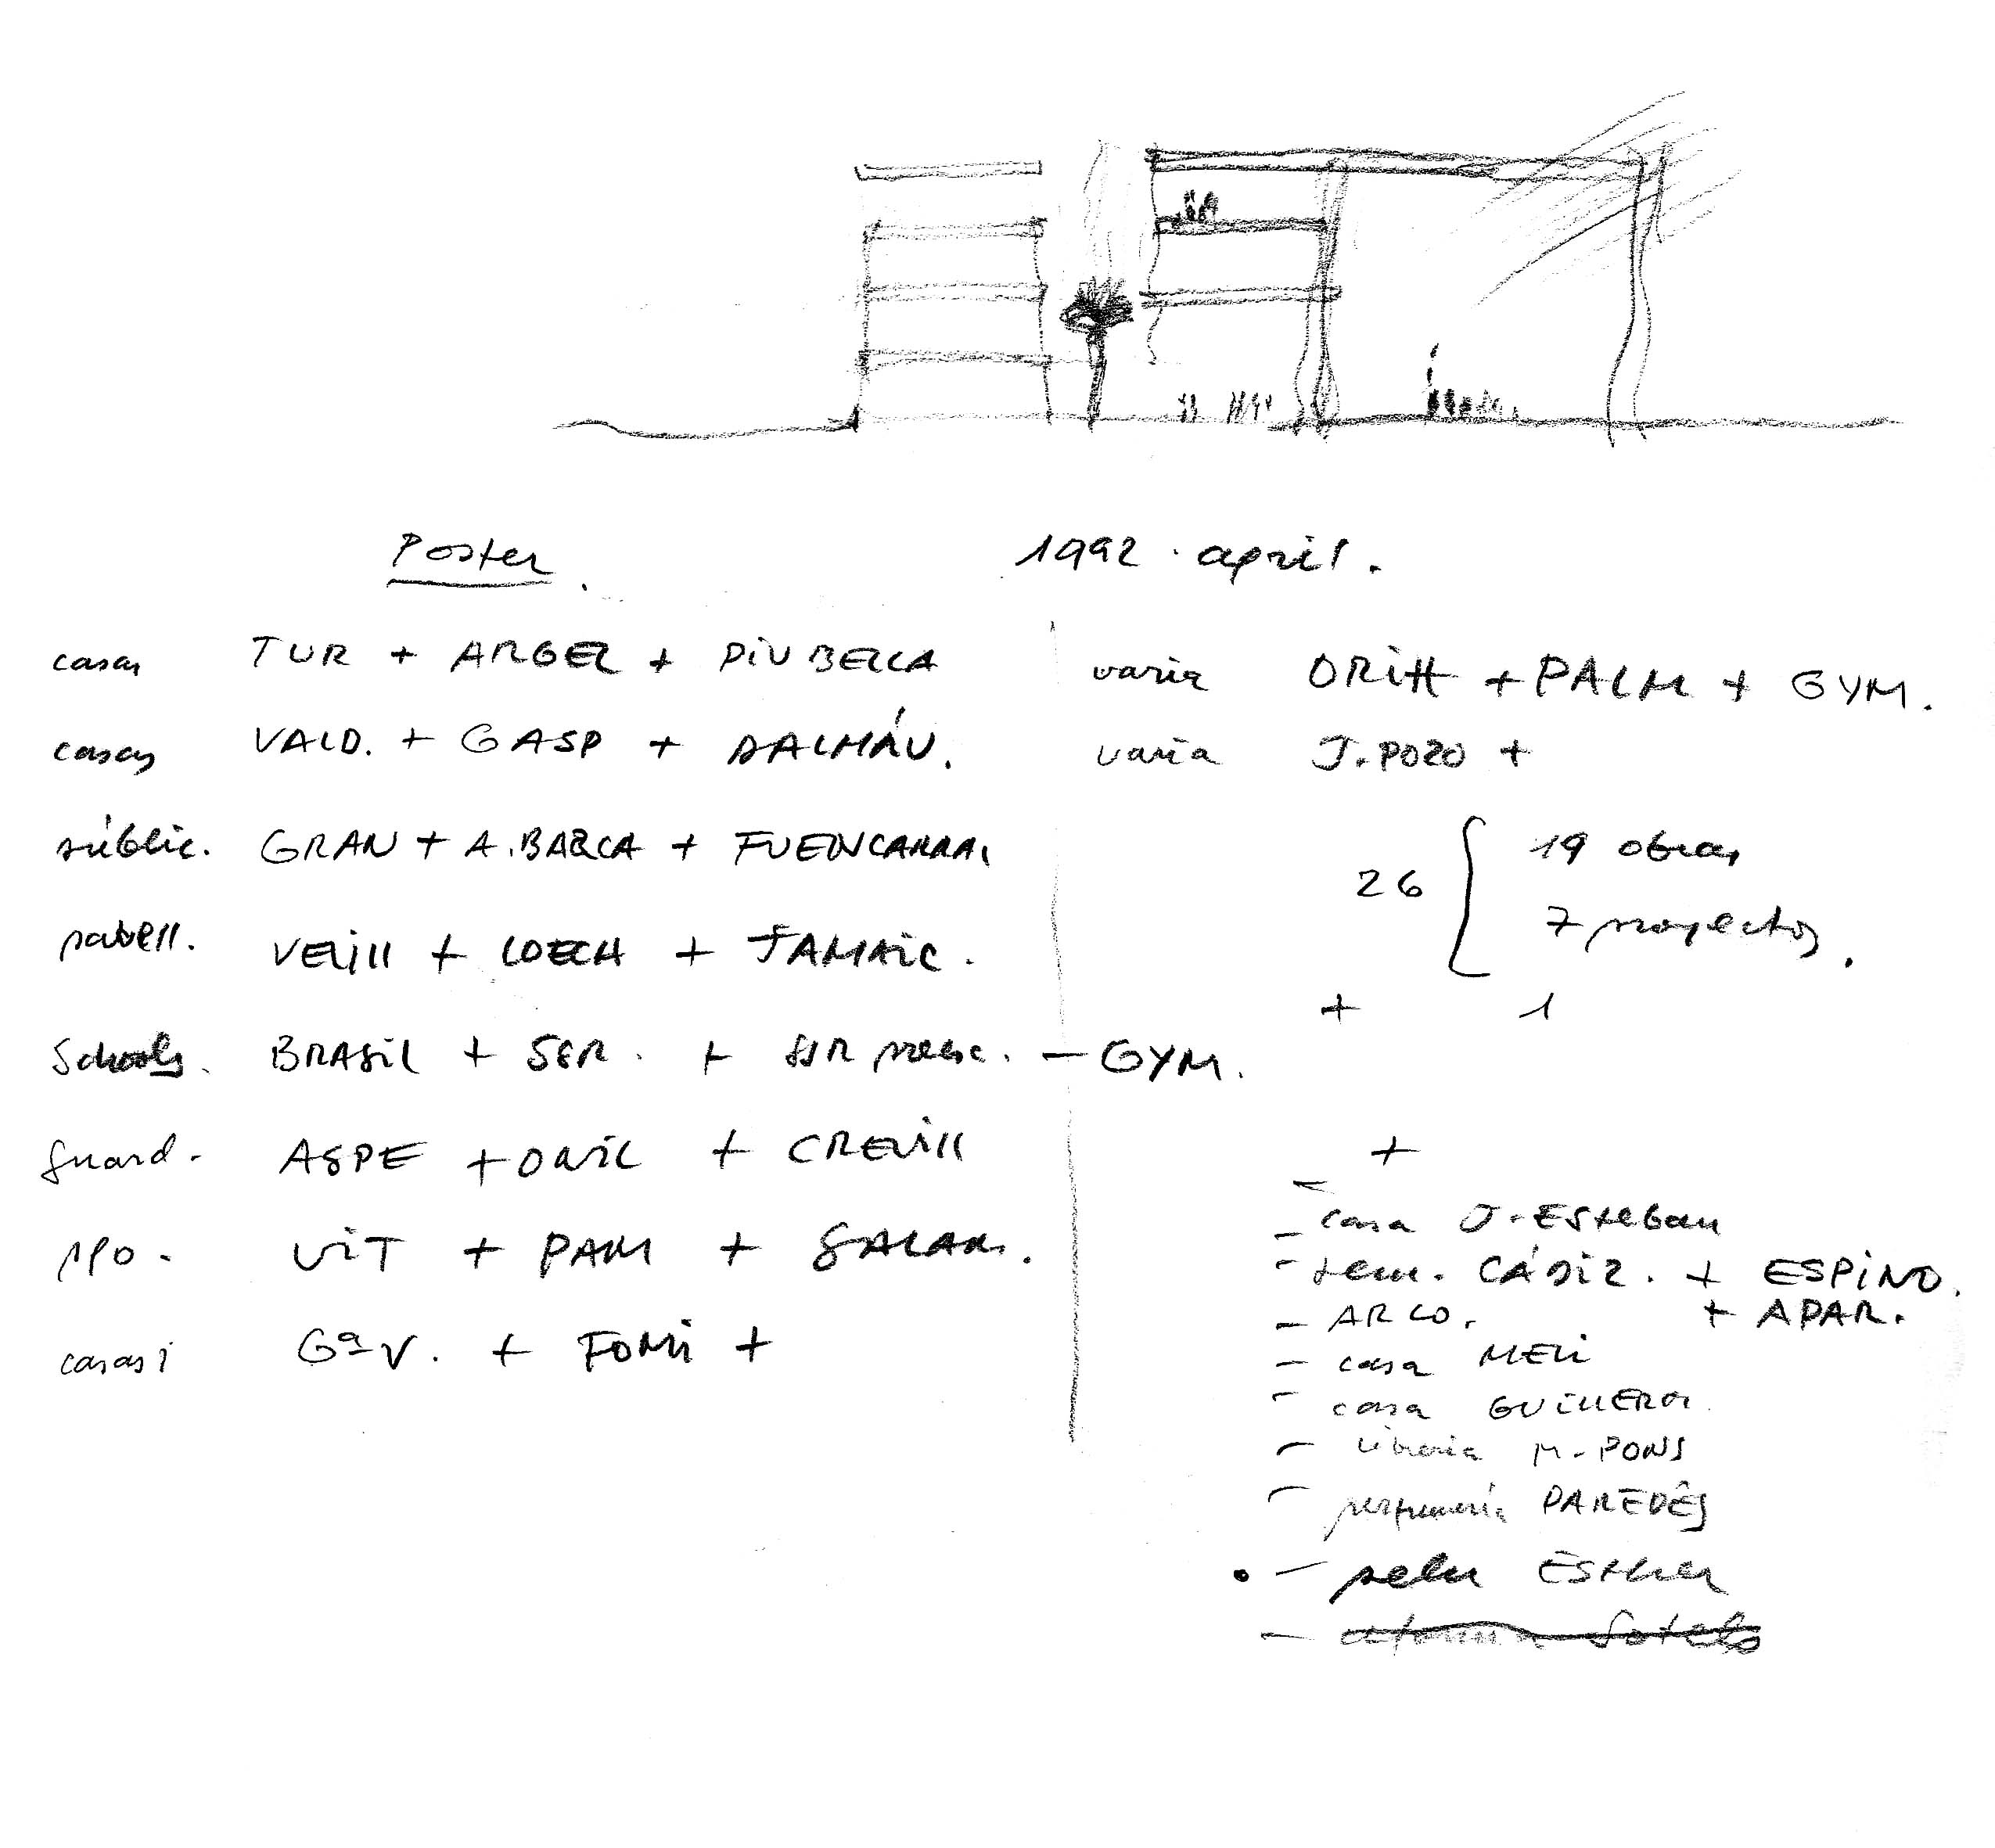 Poster.
1992. april.
casas TUR + ARGEL + PIU BELLA
casas VALD. + GASP + DALMÁU.
públic. GRAN + A. BARCA + FUENCARRAL
pabell. VELill + LOECH + JAMAIC.
Schools. BRASIL + SER. + SUR preesc. – GYM.
guard. ASPE + ONIL + CREVill
VIT + PAM + SALAM.
casas Gª V. + FOMI +
varia ORIH + PALM + GYM.
varia J. POZO +
26 { 19 obras
7 proyectos.
+ 1
+
– casa J. Esteban
– CÁDIZ. + ESPINO.
– ARCO. + APAR.
– casa MELi
– casa GUILLERM
– libreria M. PONS
– perfumería PAREDES
• – pelu ESther
– Sotelo